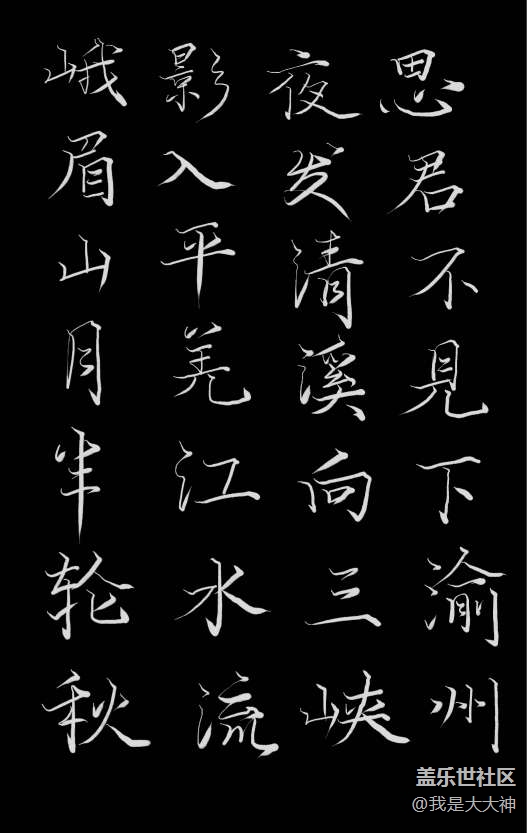 峨眉山月半轮秋
影入平羌江水流
夜发清溪向三峡
思君不见下渝州
盖乐世社区
@我是大大神